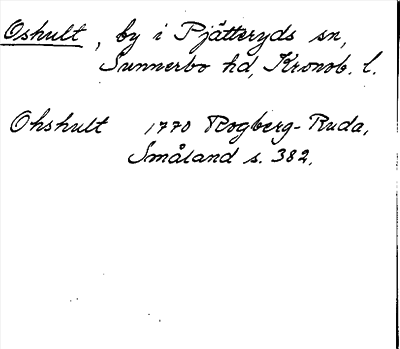 Oshult, by i Pjätteryds sn,
Sunnerbo hd, Kronob. l.
Ohshult 1770 Rogberg-Ruda,
Småland s. 382.